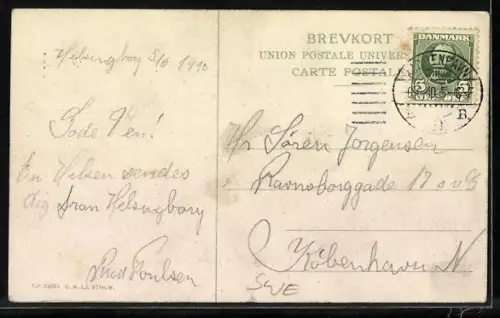 Helsingborg 5/6 1910
Gode Ven!
En Hilsen sendes
dig fra Helsingborg
Poulsen
BREVKORT
UNION POSTALE UNIVERS
CARTE POSTALE
DANMARK
Hr Søren Jørgensen
Ravnsborggade 17
København N
SWE